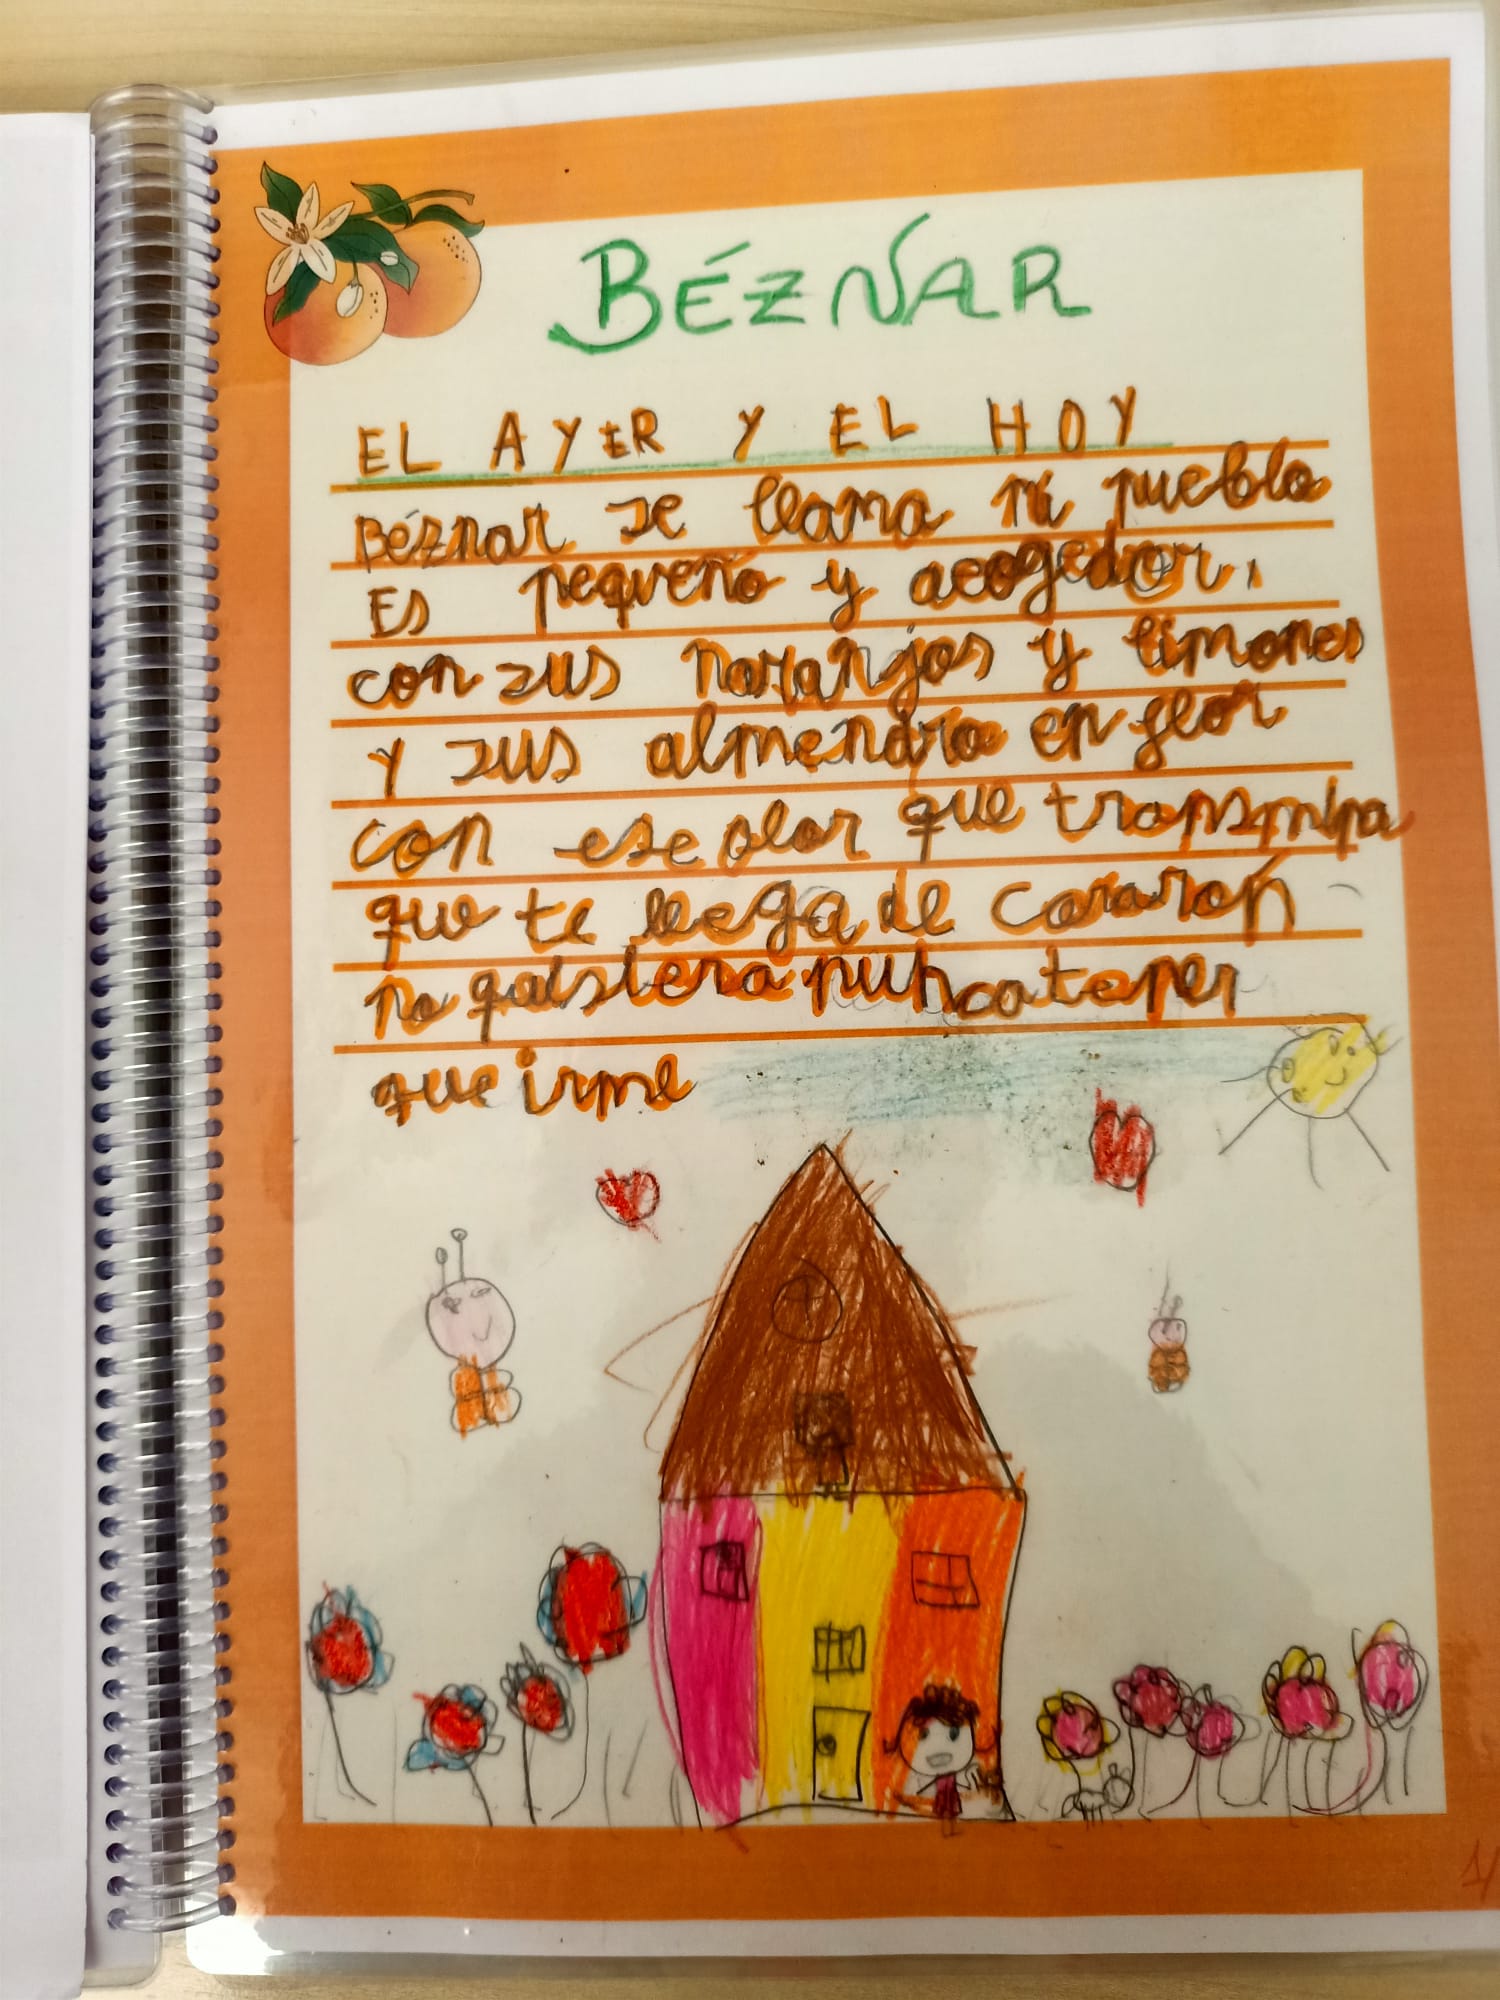 BÉZNAR
EL AYER Y EL HOY
BÉZNAR se llama mi pueblo
Es pequeño y acogedor,
con sus naranjos y limones
y sus almendro en flor
con ese olor que
que te llega del corazón
no quisiera nunca tener
que irme